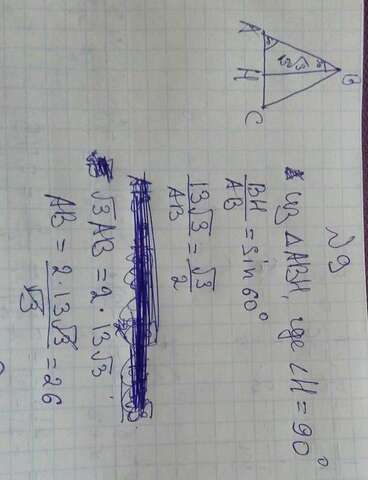 №9
A
H
C
B
13√3
из △ABH, где ∠H = 90°
BH/AB = sin 60°
13√3/AB = √3/2
√3 AB = 2 · 13√3
AB = 2 · 13√3/√3 = 26